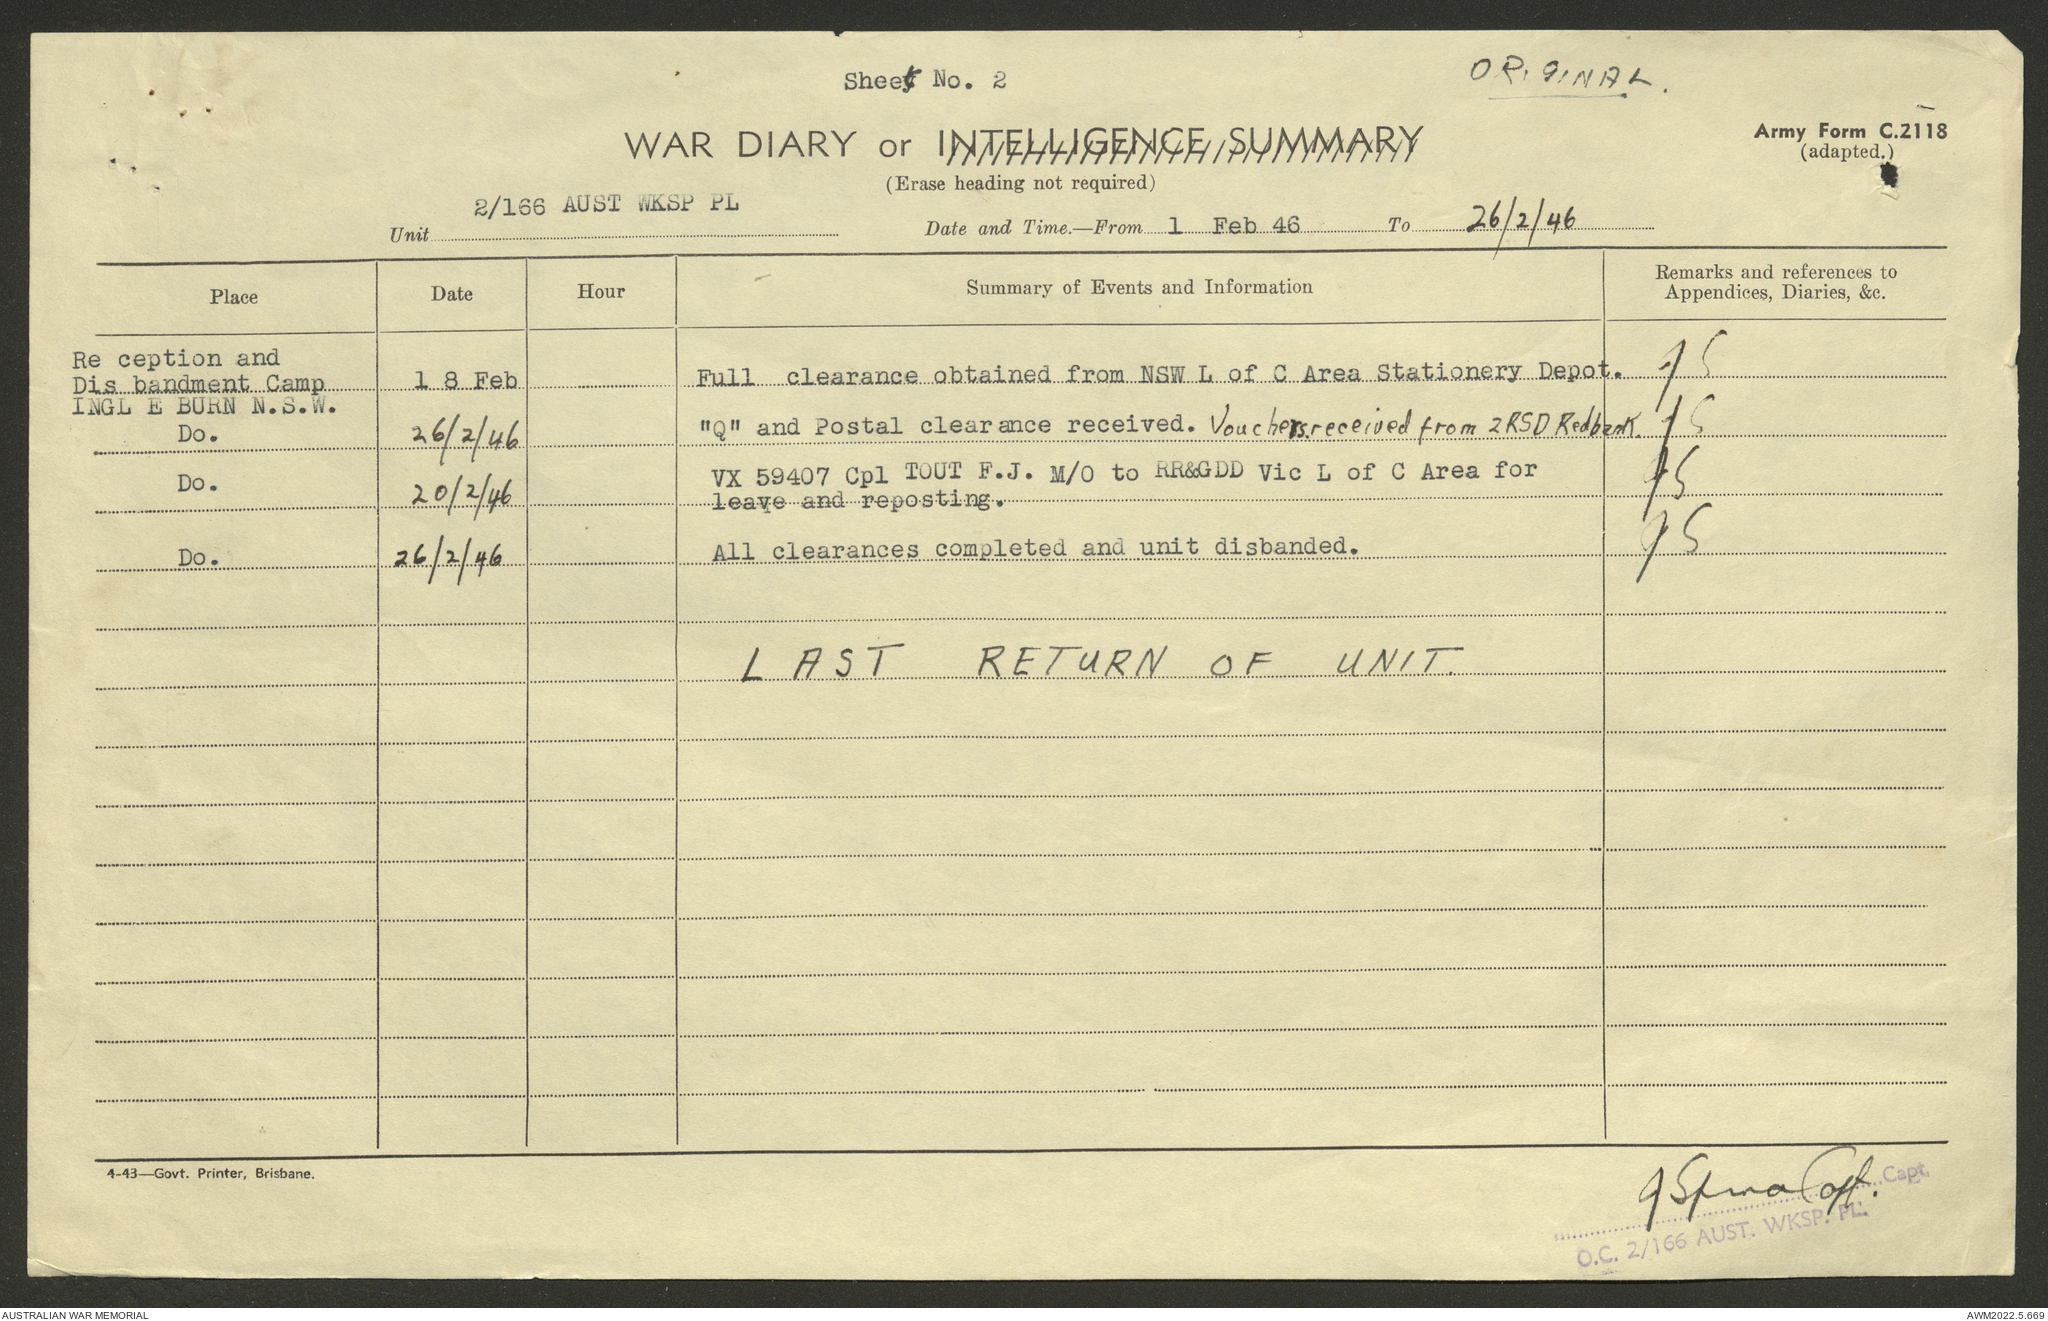 Sheet No. 2
ORIGINAL.
WAR DIARY or INTELLIGENCE SUMMARY
Army Form C.2118
(adapted.)
(Erase heading not required)
Unit 2/166 AUST WKSP PL
Date and Time.—From 1 Feb 46 To 26/2/46
Place Date Hour Summary of Events and Information Remarks and references to Appendices, Diaries, &c.
Re ception and
Dis bandment Camp 1 8 Feb Full clearance obtained from NSW L of C Area Stationery Depot. JS
INGL E BURN N.S.W.
Do. 26/2/46 "Q" and Postal clearance received. Vouchers received from 2RSD Redbank. JS
Do. 20/2/46 VX 59407 Cpl TOUT F.J. M/O to RR&GDD Vic L of C Area for JS
leave and reposting.
Do. 26/2/46 All clearances completed and unit disbanded. JS
LAST RETURN OF UNIT.
4-43—Govt. Printer, Brisbane.
Capt. Capt.
O.C. 2/166 AUST. WKSP. PL.
AUSTRALIAN WAR MEMORIAL
AWM2022.5.669